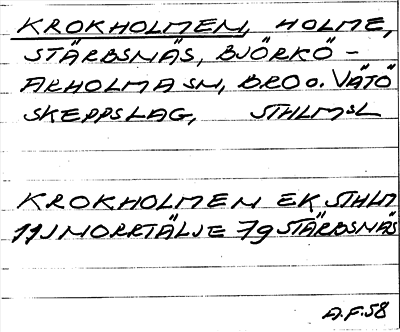 KROKHOLMEN, HOLME,
STÄRBSNÄS, BJÖRKÖ-
ARHOLMA SN, BRO O. VÄTÖ
SKEPPSLAG, STHLMSL
KROKHOLMEN EK STHLM
11J NORRTÄLJE 7g STÄRBSNÄS
A.F. 58